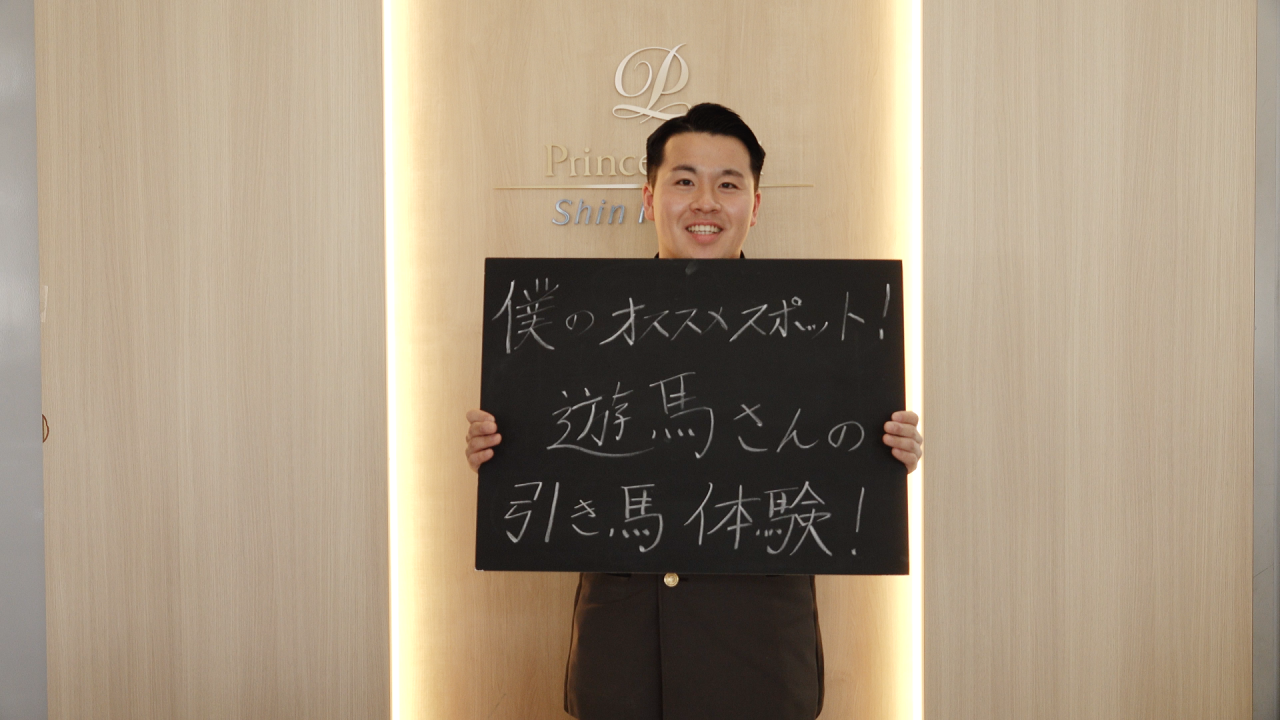 Prince
Shin
僕のオススメスポット!
遊馬さんの
引き馬体験!